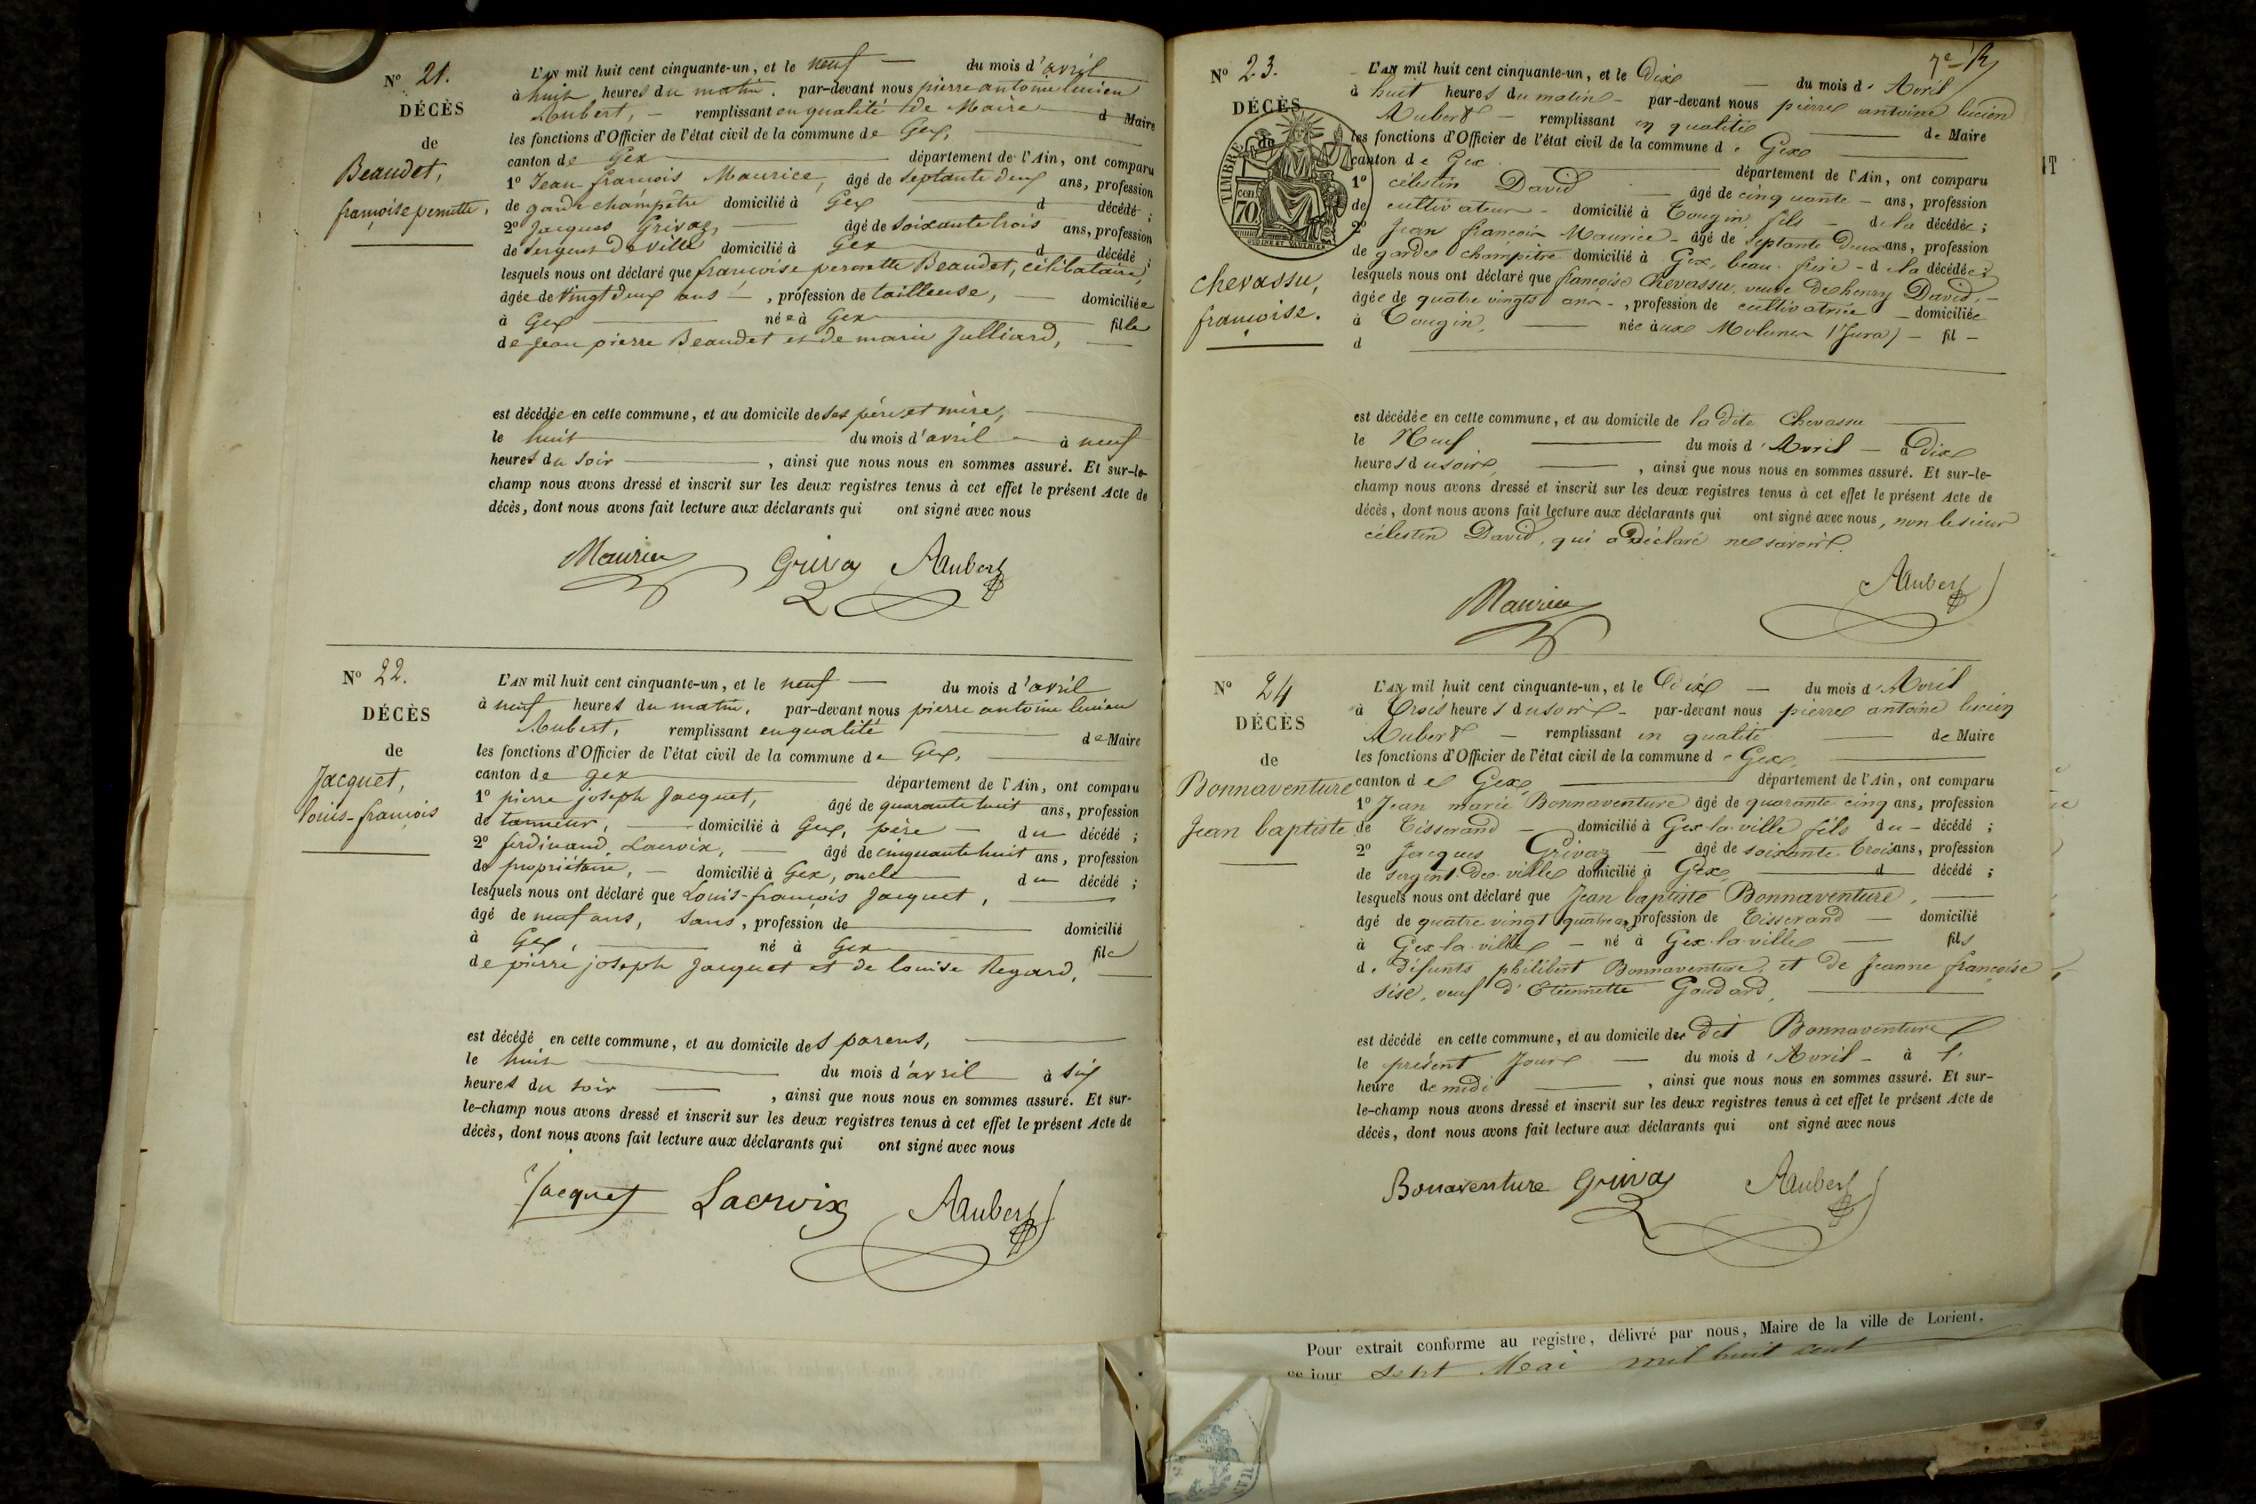 N° 21.
DÉCÈS
de
Beaudet,
françoise pernette.
L'AN mil huit cent cinquante-un, et le neuf — du mois d'avril
à huit heures du matin. par-devant nous pierre antoine lucien
Aubert, — remplissant en qualité de Maire d Maire
les fonctions d'Officier de l'état civil de la commune de Gex,
canton de Gex département de l'Ain, ont comparu
1° Jean-françois Maurice, âgé de septante deux ans, profession
de garde champêtre domicilié à Gex d décédé ;
2° Jacques Grivaz, âgé de soixante trois ans, profession
de Sergent de ville domicilié à Gex d décédé ;
lesquels nous ont déclaré que françoise pernette Beaudet, célibataire,
âgée de vingt deux ans — , profession de tailleuse, — domiciliée
à Gex née à Gex fille
de Jean pierre Beaudet et de marie Julliard,
est décédée en cette commune, et au domicile de ses père et mère,
le huit du mois d'avril à neuf
heures du soir , ainsi que nous nous en sommes assuré. Et sur-le-
champ nous avons dressé et inscrit sur les deux registres tenus à cet effet le présent Acte de
décès, dont nous avons fait lecture aux déclarants qui ont signé avec nous
Maurice Grivaz Aubert
N° 22.
DÉCÈS
de
Jacquet,
louis-françois
L'AN mil huit cent cinquante-un, et le neuf — du mois d'avril
à neuf heures du matin. par-devant nous pierre antoine lucien
Aubert, remplissant en qualité de Maire
les fonctions d'Officier de l'état civil de la commune de Gex,
canton de gex département de l'Ain, ont comparu
1° pierre joseph Jacquet, âgé de quarante huit ans, profession
de tanneur, domicilié à Gex, père — du décédé ;
2° ferdinand Lacroix, âgé de cinquante huit ans, profession
de propriétaire, — domicilié à Gex, oncle du décédé ;
lesquels nous ont déclaré que Louis-françois Jacquet,
âgé de neuf ans, sans, profession de domicilié
à Gex, né à Gex fils
de pierre joseph Jacquet et de louise Regard,
est décédé en cette commune, et au domicile de s parens,
le huit du mois d'avril à six
heures du soir , ainsi que nous nous en sommes assuré. Et sur-
le-champ nous avons dressé et inscrit sur les deux registres tenus à cet effet le présent Acte de
décès, dont nous avons fait lecture aux déclarants qui ont signé avec nous
Jacquet Lacroix Aubert
7e
N° 23.
DÉCÈS
de
TIMBRE
70
chevassu,
françoise.
L'AN mil huit cent cinquante-un, et le Dix — du mois d'Avril
à huit heures du matin — par-devant nous pierre antoine lucien
Aubert — remplissant en qualité de Maire
les fonctions d'Officier de l'état civil de la commune de Gex
canton de Gex département de l'Ain, ont comparu
1° célestin David âgé de cinquante — ans, profession
de cultivateur — domicilié à Tougin, fils — de la décédée ;
2° Jean françois Maurice — âgé de septante deux ans, profession
de garde champêtre domicilié à Gex, beau-frère — de la décédée ;
lesquels nous ont déclaré que françoise Chevassu, veuve de henry David, —
âgée de quatre vingts ans — , profession de cultivatrice — domiciliée
à Tougin, née aux Molunes (Jura) — fil —
d
est décédée en cette commune, et au domicile de la dite Chevassu
le Neuf du mois d'Avril — à Dix
heures du soir, , ainsi que nous nous en sommes assuré. Et sur-le-
champ nous avons dressé et inscrit sur les deux registres tenus à cet effet le présent Acte de
décès, dont nous avons fait lecture aux déclarants qui ont signé avec nous, non le sieur
célestin David, qui a déclaré ne savoir.
Maurice Aubert
N° 24
DÉCÈS
de
Bonnaventure
Jean baptiste
L'AN mil huit cent cinquante-un, et le Dix — du mois d'Avril
à Trois heures du soir — par-devant nous pierre antoine lucien
Aubert — remplissant en qualité de Maire
les fonctions d'Officier de l'état civil de la commune de Gex,
canton de Gex, département de l'Ain, ont comparu
1° Jean marie Bonnaventure âgé de quarante cinq ans, profession
de Tisserand — domicilié à Gex-la-ville fils du — décédé ;
2° Jacques Grivaz — âgé de soixante-trois ans, profession
de sergent de ville domicilié à Gex, d décédé ;
lesquels nous ont déclaré que Jean baptiste Bonnaventure,
âgé de quatre vingt quatre ans, profession de Tisserand — domicilié
à Gex-la-ville — né à Gex-la-ville — fils
de défunts philibert Bonnaventure, et de Jeanne françoise
sise, veuf d'Etiennette Goudard,
est décédé en cette commune, et au domicile de dit Bonnaventure
le présent Jour — du mois d'Avril — à l'
heure de midi , ainsi que nous nous en sommes assuré. Et sur-
le-champ nous avons dressé et inscrit sur les deux registres tenus à cet effet le présent Acte de
décès, dont nous avons fait lecture aux déclarants qui ont signé avec nous
Bonaventure Grivaz Aubert
Pour extrait conforme au registre, délivré par nous, Maire de la ville de Lorient,
ce jour sept Mai mil huit cent